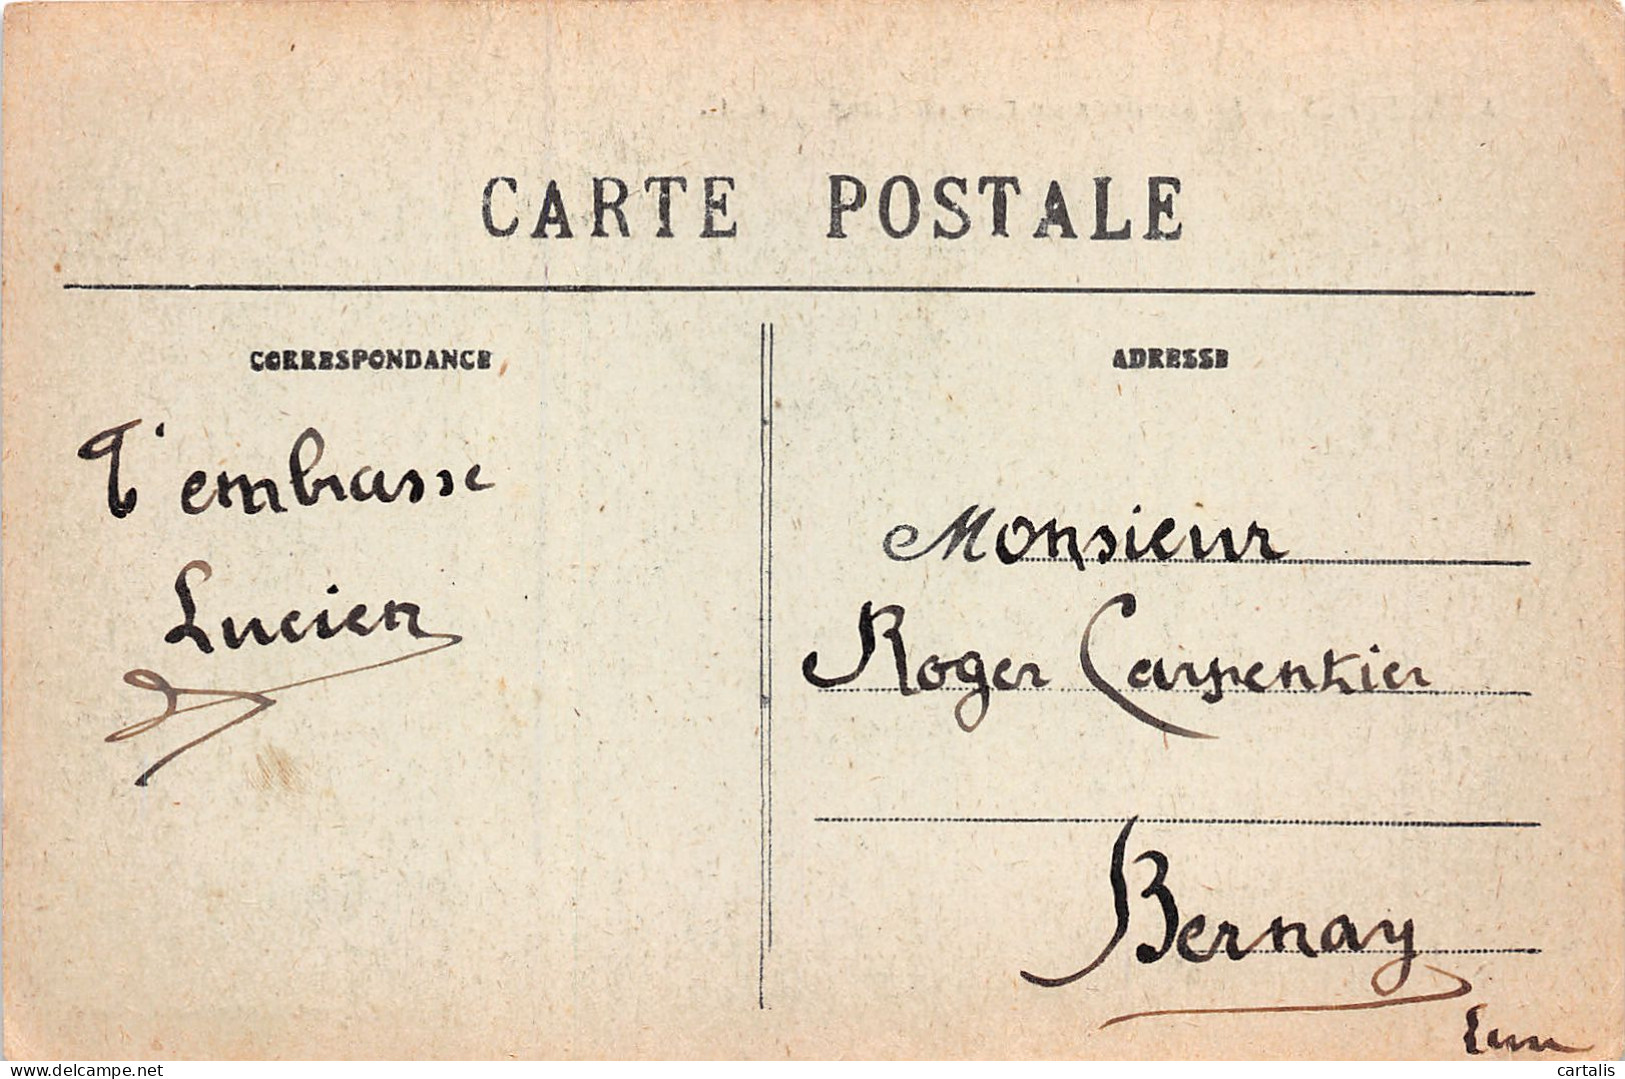 CARTE POSTALE
CORRESPONDANCE
T'embrasse
Lucien
ADRESSE
Monsieur
Roger Carpentier
Bernay
Eure
delcampe.net
cartalis